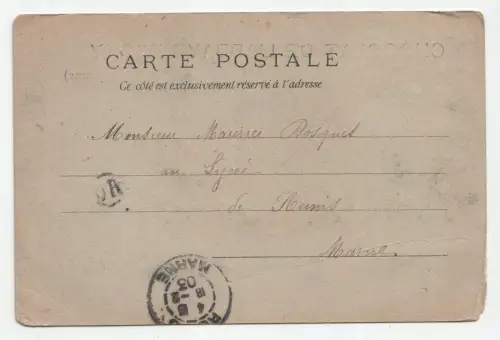 CARTE POSTALE
Ce côté est exclusivement réservé à l'adresse
Monsieur Maurice Bosquet
au Lycée
de Reims
Marne
MARNE
18 -2
03